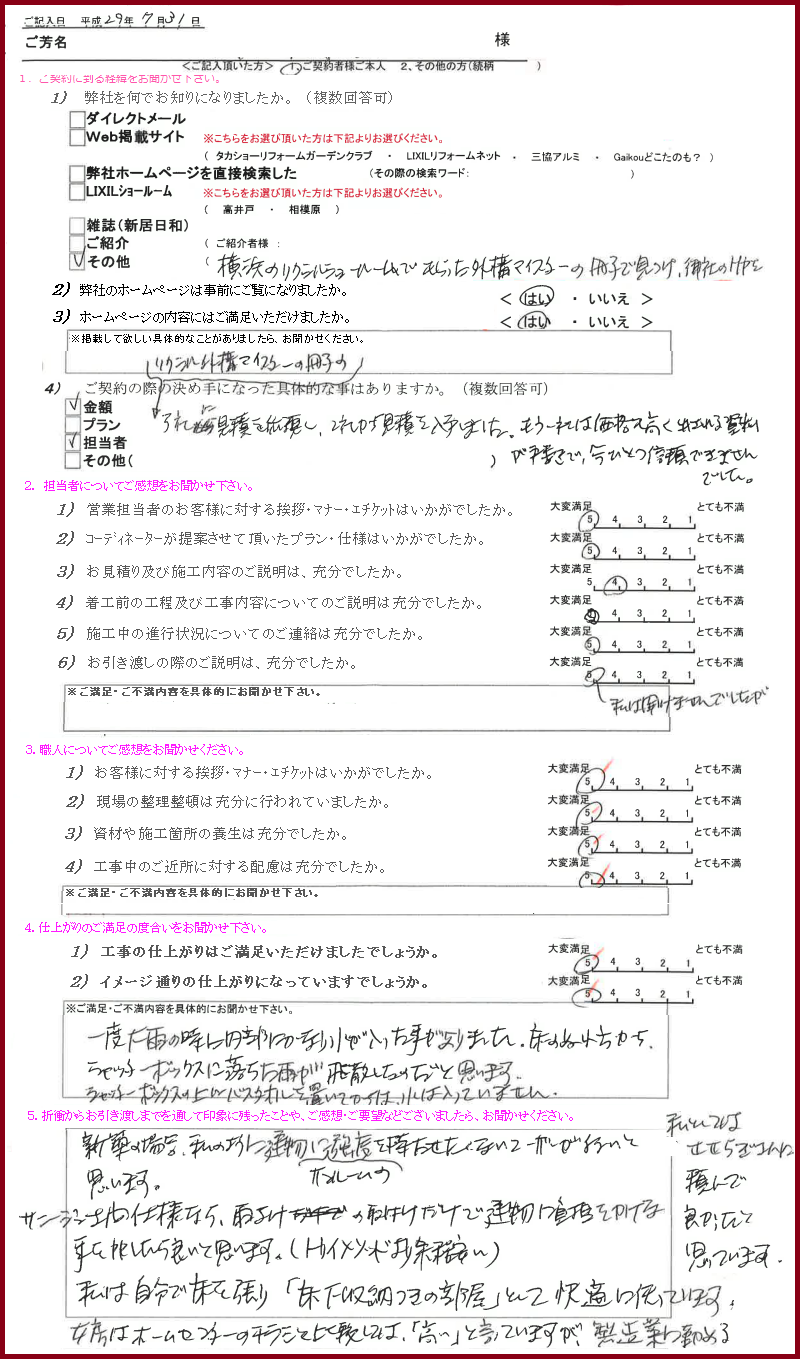 ご記入日　平成29年 7月31日
ご芳名　様
＜ご記入頂いた方＞ 1、ご契約者様ご本人　2、その他の方(続柄　)
1. ご契約に到る経緯をお聞かせ下さい。
1) 弊社を何でお知りになりましたか。（複数回答可）
ダイレクトメール
Web掲載サイト ※こちらをお選び頂いた方は下記よりお選びください。
( タカショーリフォームガーデンクラブ ・ LIXILリフォームネット ・ 三協アルミ ・ Gaikouどこたのも？ )
弊社ホームページを直接検索した (その際の検索ワード: )
LIXILショールーム ※こちらをお選び頂いた方は下記よりお選びください。
( 高井戸 ・ 相模原 )
雑誌(新居日和)
ご紹介 ( ご紹介者様 :
その他 ( 横浜のリクシルショールームでもらった外構マイスターの冊子で見つけ、御社のHPを
2) 弊社のホームページは事前にご覧になりましたか。 ＜ はい ・ いいえ ＞
3) ホームページの内容にはご満足いただけましたか。 ＜ はい ・ いいえ ＞
※掲載して欲しい具体的なことがありましたら、お聞かせください。
リクシル外構マイスターの冊子の
4) ご契約の際の決め手になった具体的な事はありますか。（複数回答可）
金額
プラン
担当者
その他( )
見積を依頼し、 見積を入手しました。もう一社は価格も高く
が 、今ひとつ信頼できません
でした。
2. 担当者についてご感想をお聞かせ下さい。
1) 営業担当者のお客様に対する挨拶・マナー・エチケットはいかがでしたか。 大変満足 5 4 3 2 1 とても不満
2) コーディネーターが提案させて頂いたプラン・仕様はいかがでしたか。 大変満足 5 4 3 2 1 とても不満
3) お見積り及び施工内容のご説明は、充分でしたか。 大変満足 5 4 3 2 1 とても不満
4) 着工前の工程及び工事内容についてのご説明は充分でしたか。 大変満足 5 4 3 2 1 とても不満
5) 施工中の進行状況についてのご連絡は充分でしたか。 大変満足 5 4 3 2 1 とても不満
6) お引き渡しの際のご説明は、充分でしたか。 大変満足 5 4 3 2 1 とても不満
※ご満足・ご不満内容を具体的にお聞かせ下さい。
私は聞けませんでしたが
3. 職人についてご感想をお聞かせください。
1) お客様に対する挨拶・マナー・エチケットはいかがでしたか。 大変満足 5 4 3 2 1 とても不満
2) 現場の整理整頓は充分に行われていましたか。 大変満足 5 4 3 2 1 とても不満
3) 資材や施工箇所の養生は充分でしたか。 大変満足 5 4 3 2 1 とても不満
4) 工事中のご近所に対する配慮は充分でしたか。 大変満足 5 4 3 2 1 とても不満
※ご満足・ご不満内容を具体的にお聞かせ下さい。
4. 仕上がりのご満足の度合いをお聞かせ下さい。
1) 工事の仕上がりはご満足いただけましたでしょうか。 大変満足 5 4 3 2 1 とても不満
2) イメージ通りの仕上がりになっていますでしょうか。 大変満足 5 4 3 2 1 とても不満
※ご満足・ご不満内容を具体的にお聞かせ下さい。
一度大雨の時に内部にかなり水が入った事がありました。床のぬれ方から、
シャッターボックスに落ちた雨が飛散したのだと思います。
シャッターボックスの上にバスタオルを置いてからは、水は入っていません。
5. 折衝からお引き渡しまでを通して印象に残ったことや、ご感想・ご要望などございましたら、お聞かせください。
新築の場合、私の様に建物に強度を降たせたくないユーザーが多いと
思います。
ホームの
サンルーム 仕様なら、雨よけ の取付けだけで建物に負担をかけな
(トイメンド お余程安い)
私は自分で床を張り「床下収納つきの部屋」として快適に使っています。
女房はホームセンターのチラシと比較しては、「高い」と言っていますが、製造業に勤める
私としては
頼んで
良かったと
思っています。